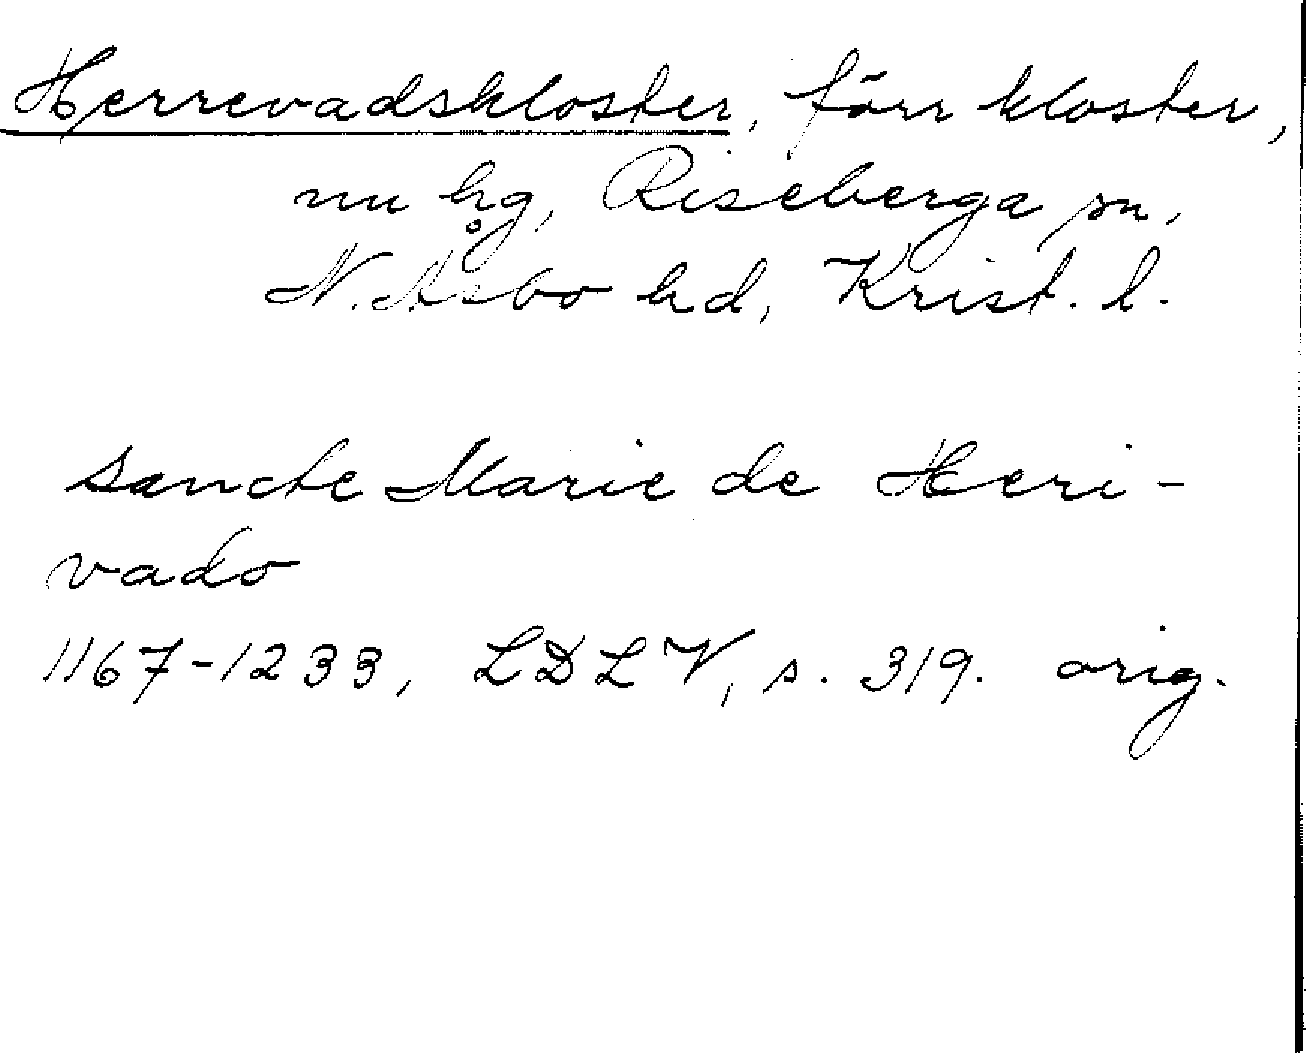 Herrevadskloster, förr kloster,
nu hg, Riseberga sn,
N. Åsbo hd, Krist. l.
sancte Marie de Heri-
vado
1167-1233, LDLV, s. 319. orig.